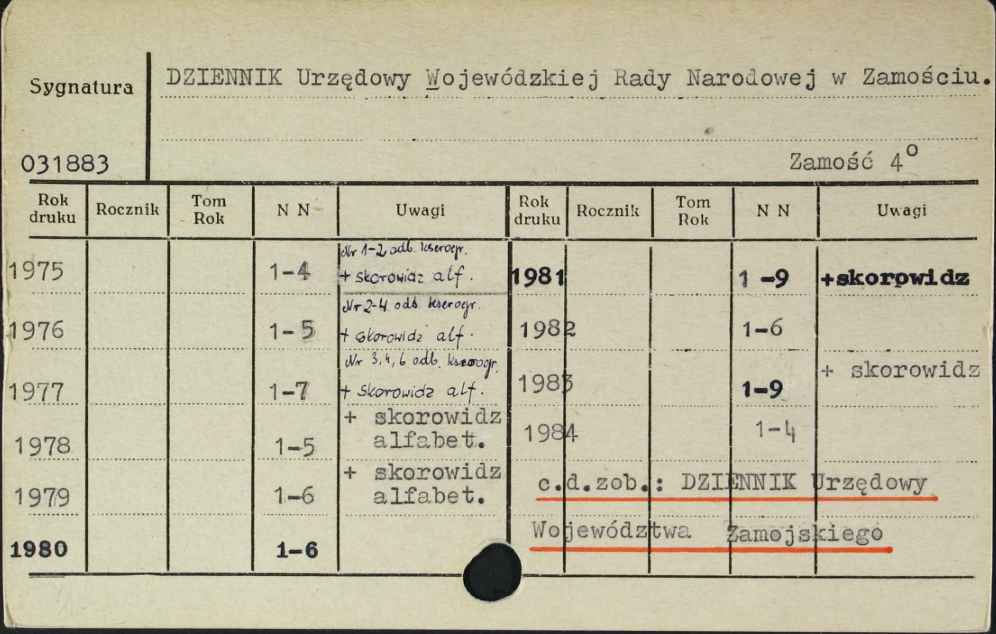 Sygnatura
DZIENNIK Urzędowy Wojewódzkiej Rady Narodowej w Zamościu.
031883
Zamość 4º
Rok druku Rocznik Tom Rok N N Uwagi Rok druku Rocznik Tom Rok N N Uwagi
1975 1-4 Nr 1-2 odb. kserogr.
+ skorowidz alf.
1976 1-5 Nr 2-4 odb. kserogr.
+ skorowidz alf.
1977 1-7 Nr 3, 4, 6 odb. kserogr.
+ skorowidz alf.
1978 1-5 + skorowidz
alfabet.
1979 1-6 + skorowidz
alfabet.
1980 1-6
1981 1-9 +skorowidz
1982 1-6
1983 1-9 + skorowidz
1984 1-4
c.d.zob.: DZIENNIK Urzędowy
Województwa Zamojskiego